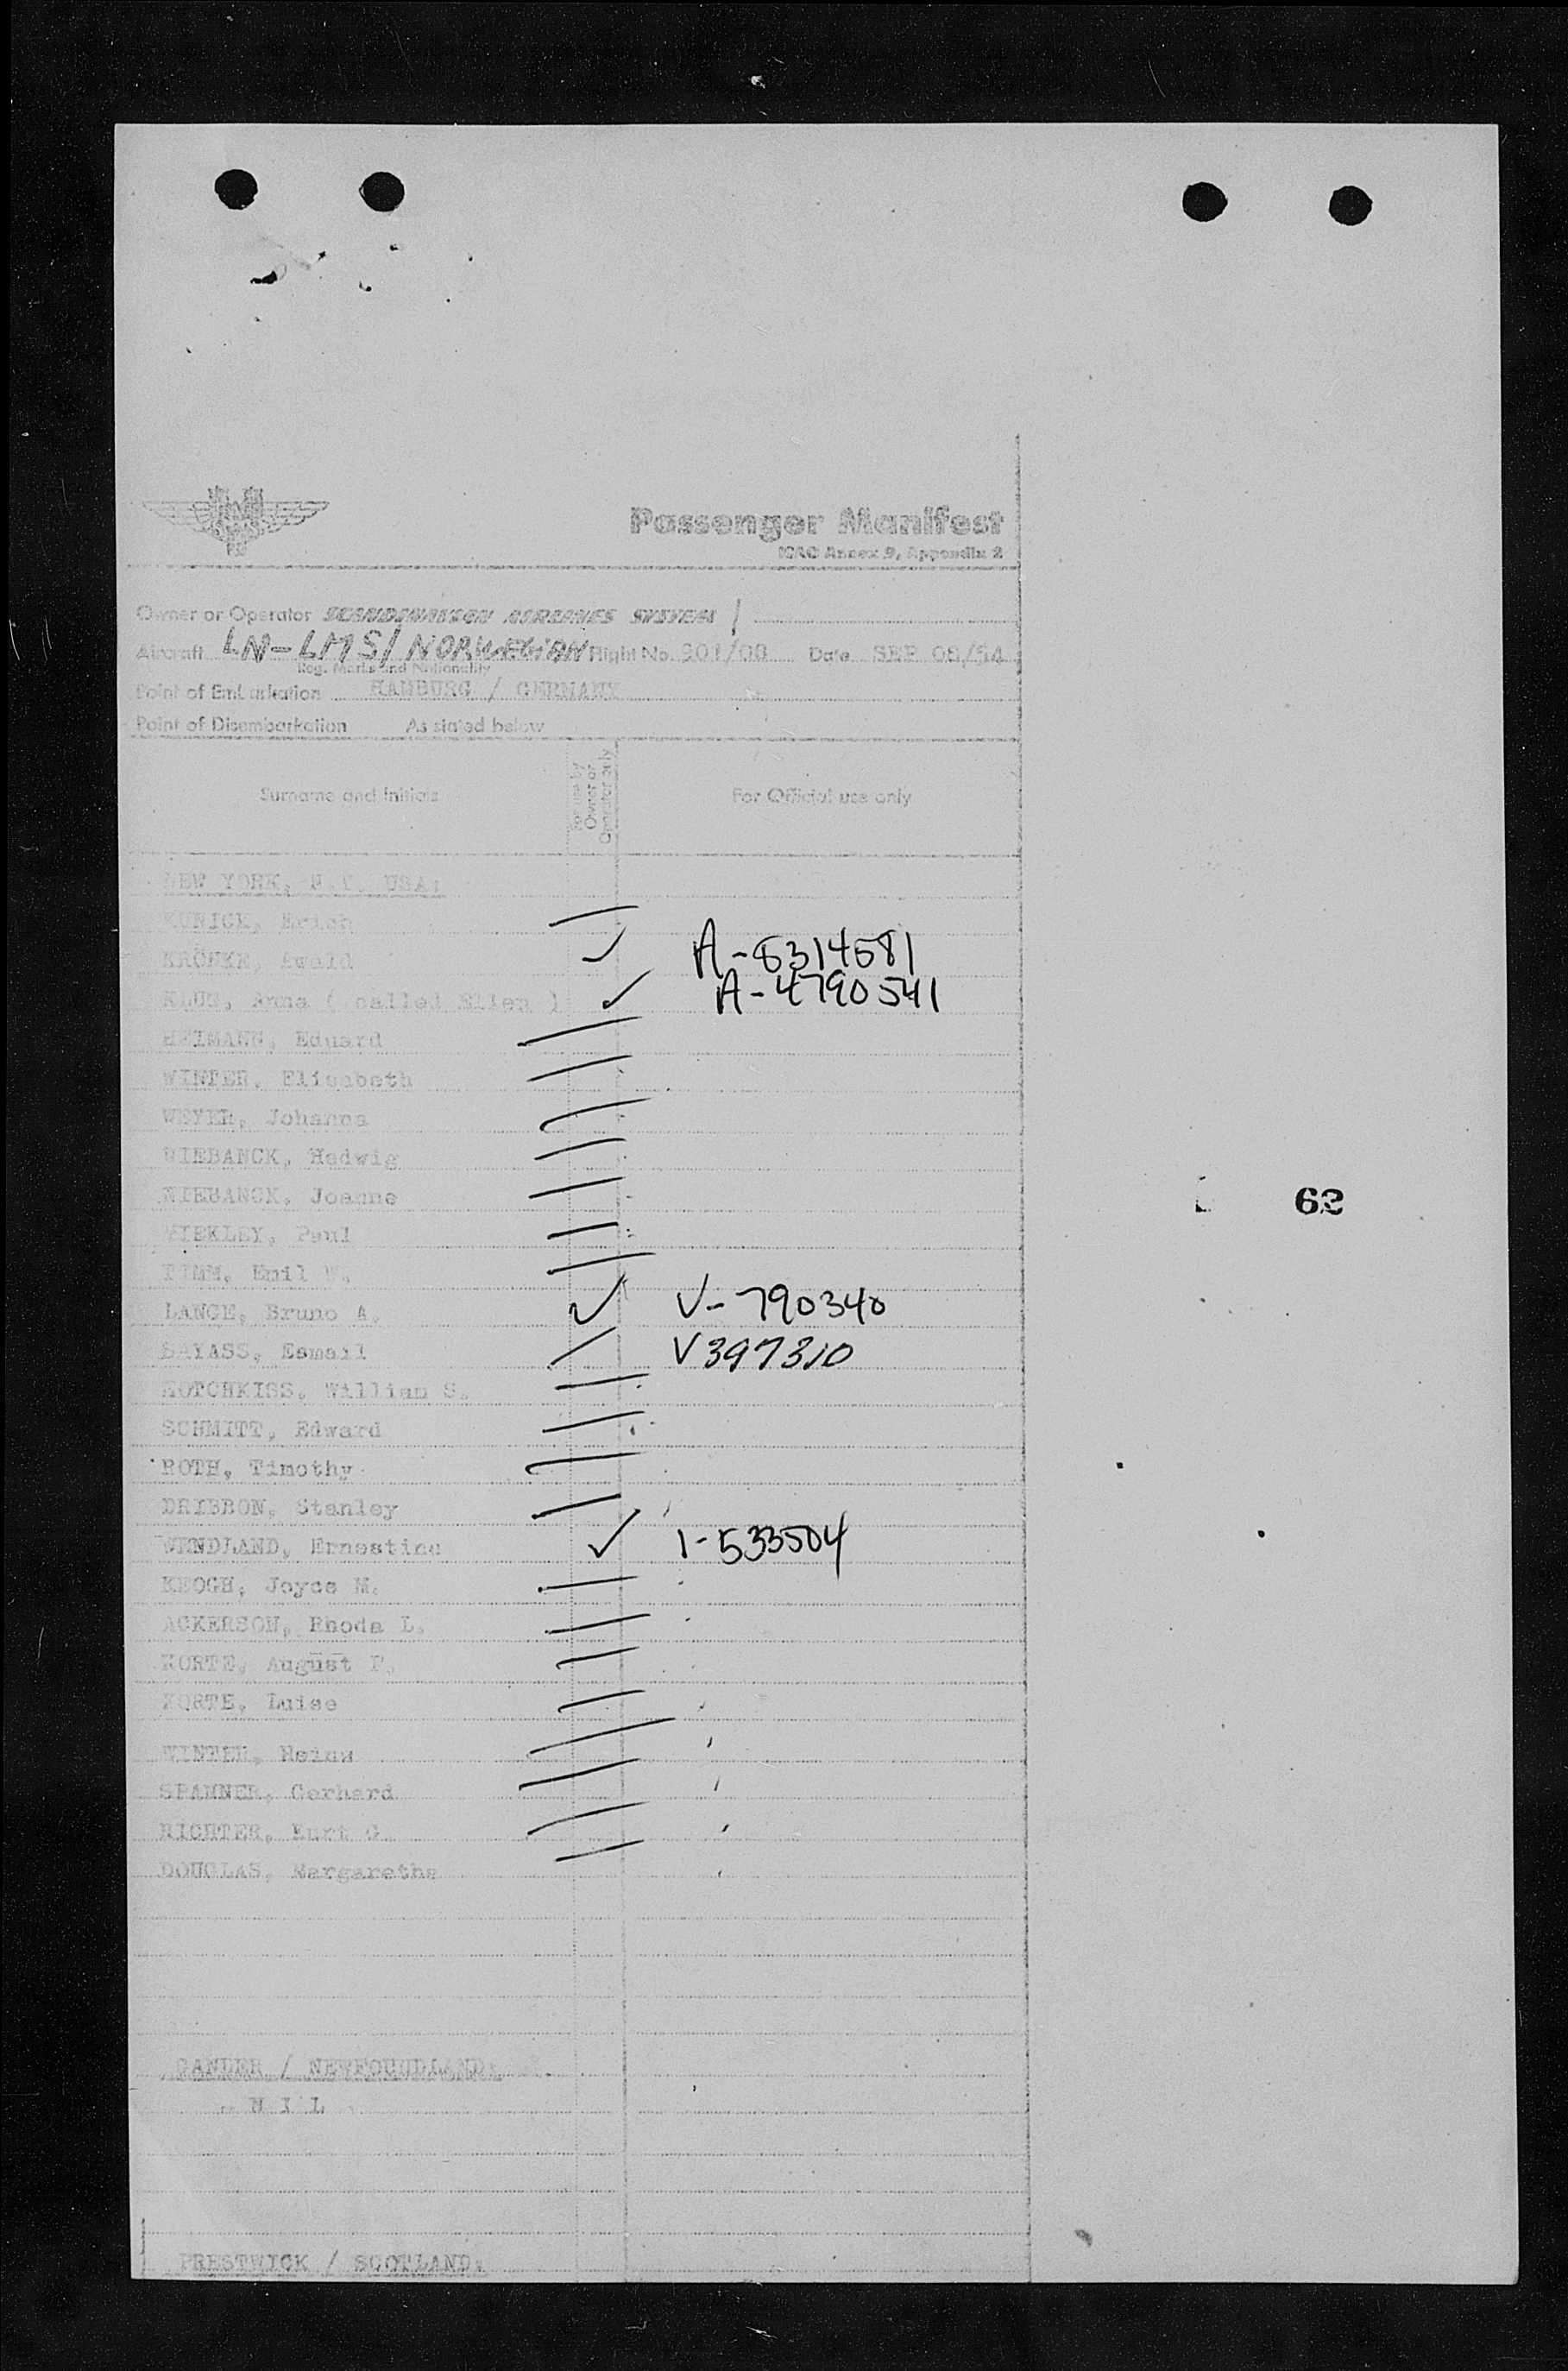 Passenger Manifest
ICAO Annex 9, Appendix 2
Owner or Operator SCANDINAVIAN AIRLINES SYSTEM
Aircraft LN-LMS/NORWEGIAN Flight No. 901/08 Date SEP 08/54
Reg. Marks and Nationality
Point of Embarkation HAMBURG / GERMANY
Point of Disembarkation As stated below
Surname and Initials
For use by Owner or Operator only
For Official use only
NEW YORK, N.Y. USA:
KUNICK, Erich
Ewald A-8314581
KLUS, Anna ( called Ellen ) A-4790541
HEIMANN, Eduard
WINTER, Elisabeth
WEYER, Johanna
NIEBANCK, Hedwig
NIEBANCK, Joanne
Paul
TIMM, Emil W.
LANGE, Bruno A. V-790340
BAYASS, Esmail V397310
HOTCHKISS, William S.
SCHMITT, Edward
ROTH, Timothy
62
DRIBBON, Stanley
WENDLAND, Ernestine 1-533504
KEOGH, Joyce M.
ACKERSON, Rhoda L.
KORTE, August F.
KORTE, Luise
WINTER, Heinz
SPANNER, Gerhard
RICHTER, Kurt G.
DOUGLAS, Margarethe
GANDER / NEWFOUNDLAND:
- N I L
PRESTWICK / SCOTLAND: